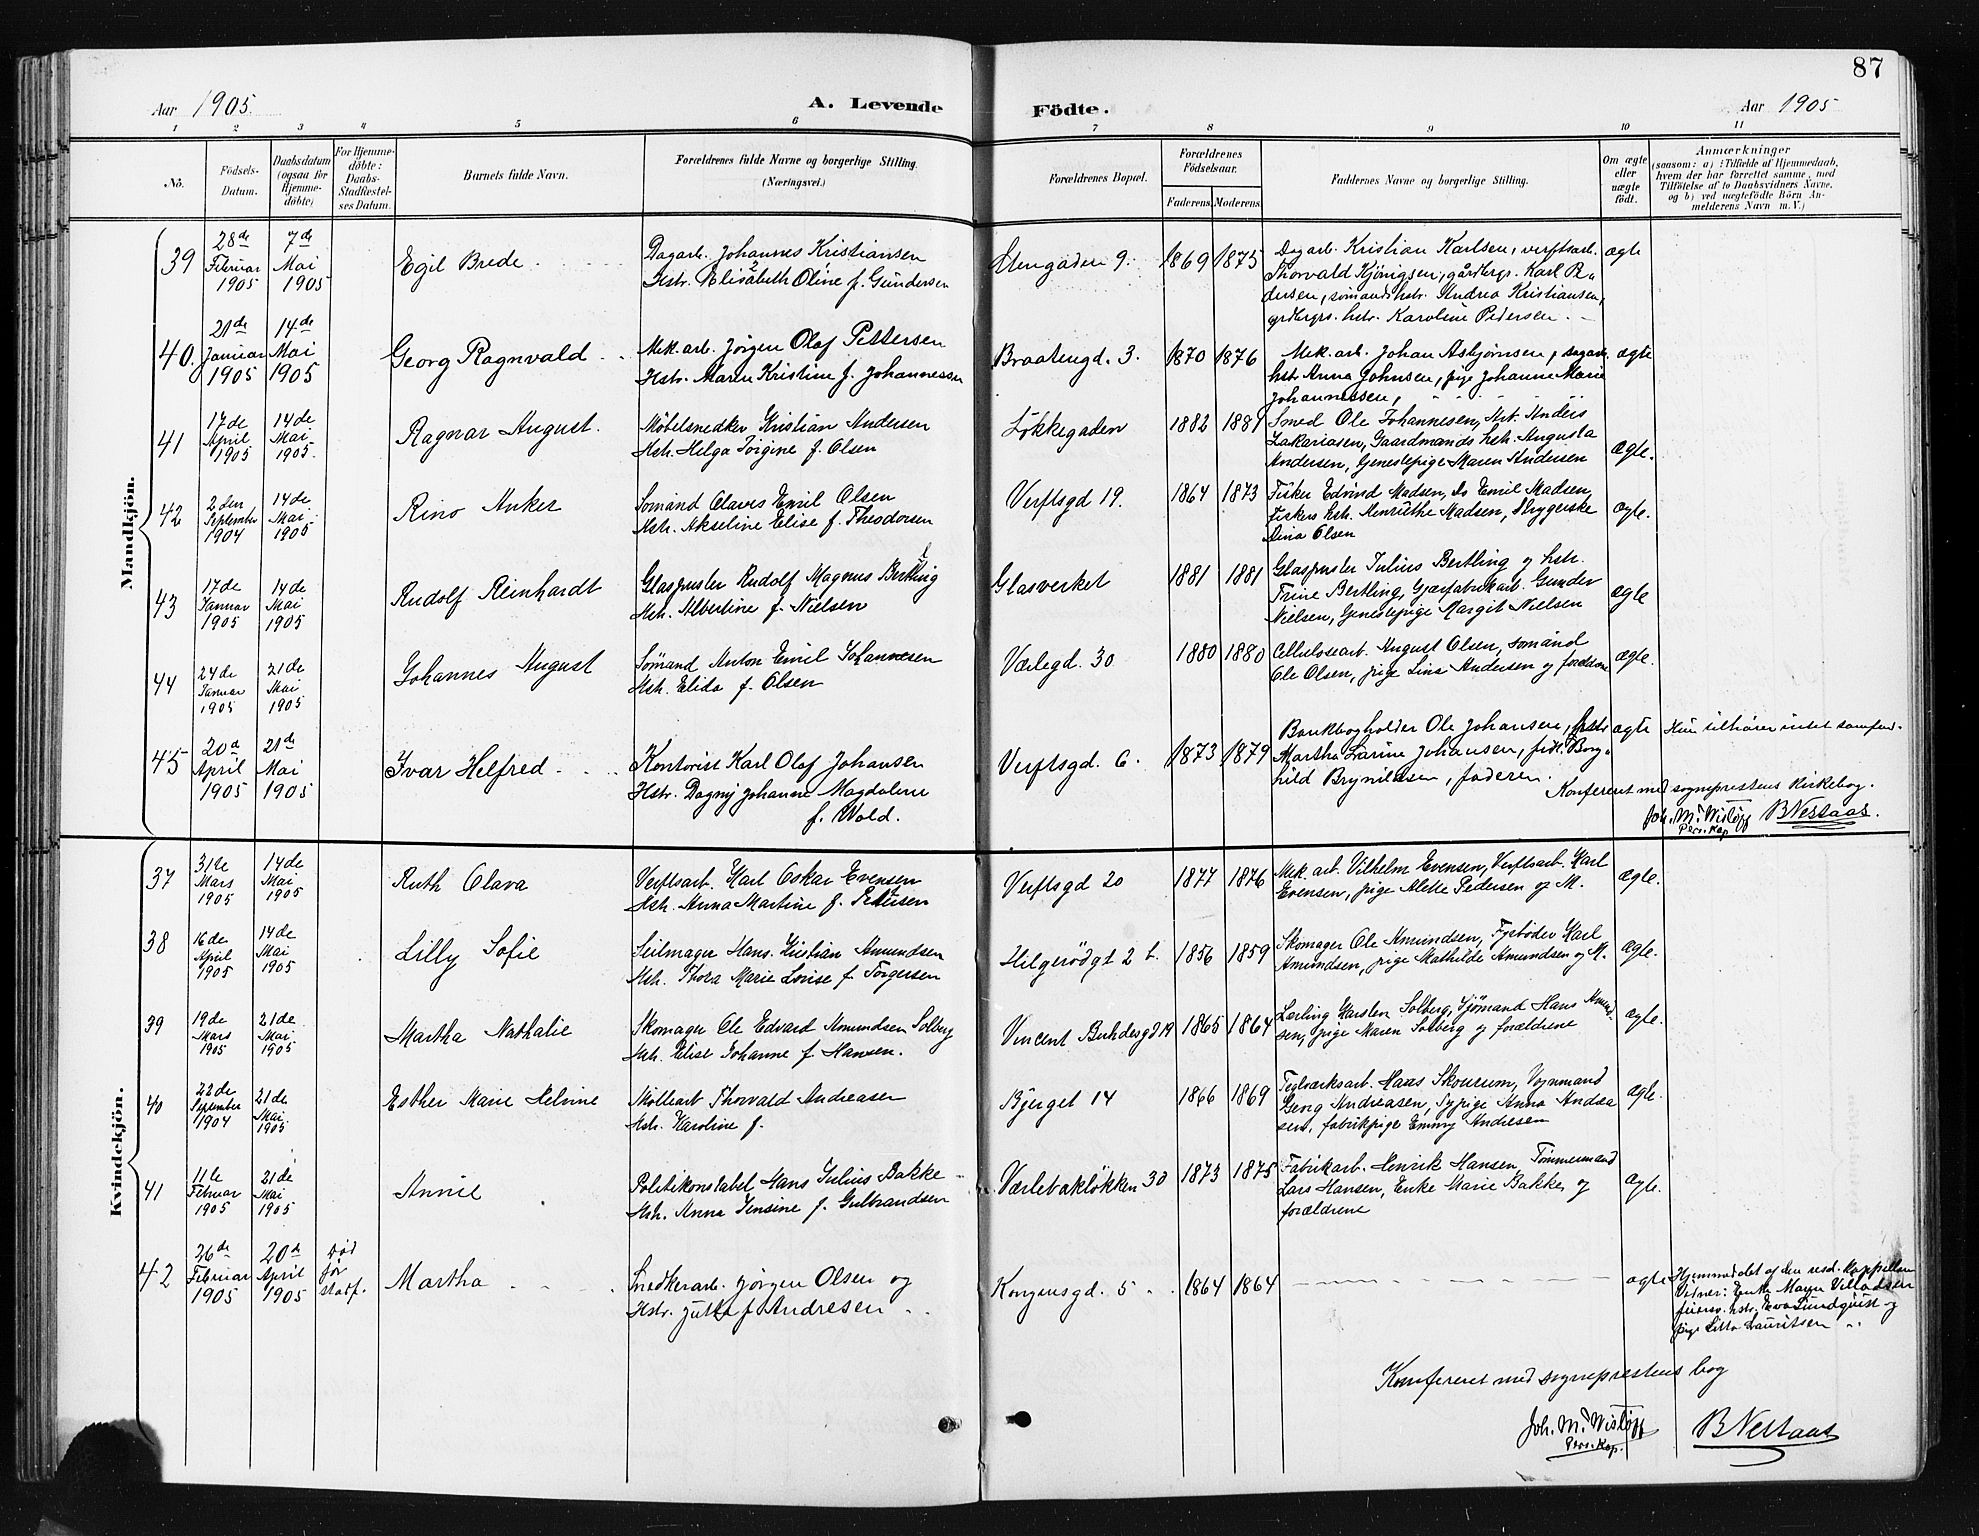 87
Aar 1905.
A. Levende
Födte.
Aar 1905
1 2 3 4 5 6 7 8 9 10 11
No.
Födsels-
Datum.
Daabsdatum
(ogsaa for
Hjemme-
döbte)
For Hjemme-
döbte:
Daabs-
Stadfæstel-
ses Datum.
Barnets fulde Navn.
Forældrenes fulde Navne og borgerlige Stilling.
(Næringsvei.)
Forældrenes Bopæl.
Forældrenes
Födselsaar.
Faderens.
Moderens.
Faddernes Navne og borgerlige Stilling.
Om ægte
eller
uægte
födt.
Anmærkninger
(saasom: a) i Tilfælde af Hjemmedaab,
hvem der har forrettet samme, med
Tilföielse af to Daabsvidners Navne,
og b) ved uægtefödte Börn An-
melderens Navn m. V.)
Mandkjön.
39
28de
Februar
1905
7de
Mai
1905
Egil Brede
Dagarb. Johannes Kristiansen
Hstr. Elisabeth Oline f. Gundersen
Stengaden 9.
1869
1875
Dagarb. Kristian Karlsen, verftsarb.
Thorvald Kjönigsen, gårdbrgs. Karl Pe-
dersen, sömandshstr. Andrea Kristiansen,
grdbrgrs. hstr. Karoline Pedersen.
ægte
40.
21de
Januar
1905
14de
Mai
1905
Georg Ragnvald
Mek. arb. Jørgen Olaf Pettersen
Hstr. Maren Kristine f. Johannessen
Braatengd. 3.
1870
1876
Mek. arb. Johan Asbjørnsen, dagarb.
hstr Anna Johnsen, pige Johanne Marie
Johannessen,
ægte
41
17de
April
1905
14de
Mai
1905.
Ragnar August.
Möbelsnedker Kristian Andersen
Hstr. Helga Jörgine f. Olsen
Løkkegaden
1882
1881
Smed Ole Johannesen, Arb. Anders
Zakariasen, Gaardmands hstr. Augusta
Andersen, Genestepige Maren Andersen
ægte.
42
2den
September
1904
14de
Mai
1905
Rino Anker
Sömand Olaves Emil Olsen
Hstr. Akseline Elise f. Theodorsen
Verftsgd 19.
1864
1873
Fisker Edvind Madsen, Do Emil Madsen
Fiskers hstr. Henriette Madsen, Strygerske
Dina Olsen
ægte.
43
17de
Januar
1905
14de
Mai
1905
Rudolf Reinhardt
Glaspuster Rudolf Magnus Bertling
Hstr. Albertine f. Nielsen
Glasverket
1881
1881
Glaspuster Julius Bertling og hstr.
Trine Bertling, Gjærfabrikarb. Gunder
Nielsen, Genestepige Margit Nielsen
ægte
44
24de
Januar
1905
21de
Mai
1905
Johannes August
Sömand Anton Emil Johannesen
Hstr. Elida f. Olsen
Værlegd. 30
1880
1880
Cellulosearb. August Olsen, sömand
Ole Olsen, pige Lina Andersen og forældrene
ægte.
45
20d
April
1905
21de
Mai
1905
Ivar Helfred
Kontorist Karl Olaf Johansen
Hstr. Dagny Johanne Magdalene
f. Wold.
Verftsgd. 6.
1873
1879
Bankbogholder Ole Johansen, hstr
Martha Larine Johansen, frk. Borg-
hild Brynildsen, faderen.
ægte
Hun tilhører intet samfund.
Konfereret med sogneprestens kirkebog.
Joh. M. Wisløff
Pers. Kap
B Nestaas.
Kvindekjön.
37
31te
Mars
1905
14de
Mai
1905
Ruth Olava
Verftsarb. Karl Oskar Evensen
Hstr. Anna Martine f. Petersen
Verftsgd 20
1877
1876
Mek. arb. Vilhelm Evensen, Verftsarb. Karl
Evensen, pige Alette Pedersen og M.
ægte.
38
16de
April
1905
14de
Mai
1905
Lilly Sofie
Seilmager Hans Kristian Amundsen
Hstr. Thora Marie Lovise f Torgersen
Helgerödgt 2 b.
1856
1859
Skomager Ole Amundsen, Fyrböder Karl
Amundsen, pige Mathilde Amundsen og M.
ægte.
39
19de
Mars
1905
21de
Mai
1905
Martha Nathalie
Skomager Ole Edvard Amundsen Solberg
Hstr. Elise Johanne f Hansen.
Vincent Buhdesgd 19
1865
1864
Lærling Karsten Solberg, Sjömand Hans Amund-
sen, pige Maren Solberg og forældrene
ægte.
40
22de
September
1904
21de
Mai
1905
Esther Marie Helvine
Skollearb Thorvald Andreasen
Hstr. Karoline f.
Bjerget 14
1866
1869
Teglværksarb. Hans Skourum, Vognmand
Georg Andreasen, Sypige Anna Andrea
sen, fabrikpige Emmy Andresen
ægte.
41
11te
Februar
1905
21de
Mai
1905
Annie
Politikonstabel Hans Julius Bakke
Hstr. Anna Jensine f. Gulbrandsen
Værlebakløkken 30
1873
1875
Fabrikarb. Henrik Hansen, Tømmermand
Lars Hansen, Enke Marie Bakke, og
forældrene
ægte.
42
26de
Februar
1905
20d
April
1905
död
för
stadf.
Martha
Snedkerarb. Jørgen Olsen og
Hstr. Jutta f. Andresen
Kongensgd. 5
1864
1864
ægte
Hjemmedøbt af den resid. kappellan
Vitner: Enke Maren Villadsen
hstr. Eva Lundquist og
pige Litta Lauritsen
Konfereret med sogneprestens bog
Joh. M. Wisløff
Pers. Kap.
B Nestaas